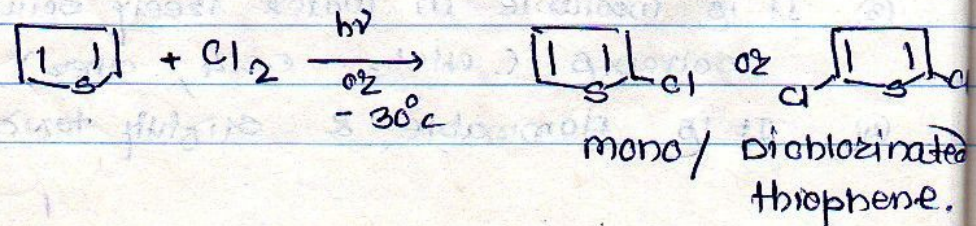 S + Cl2 hν or - 30°c S Cl or Cl S Cl
mono/ Dichlorinated
thiophene.